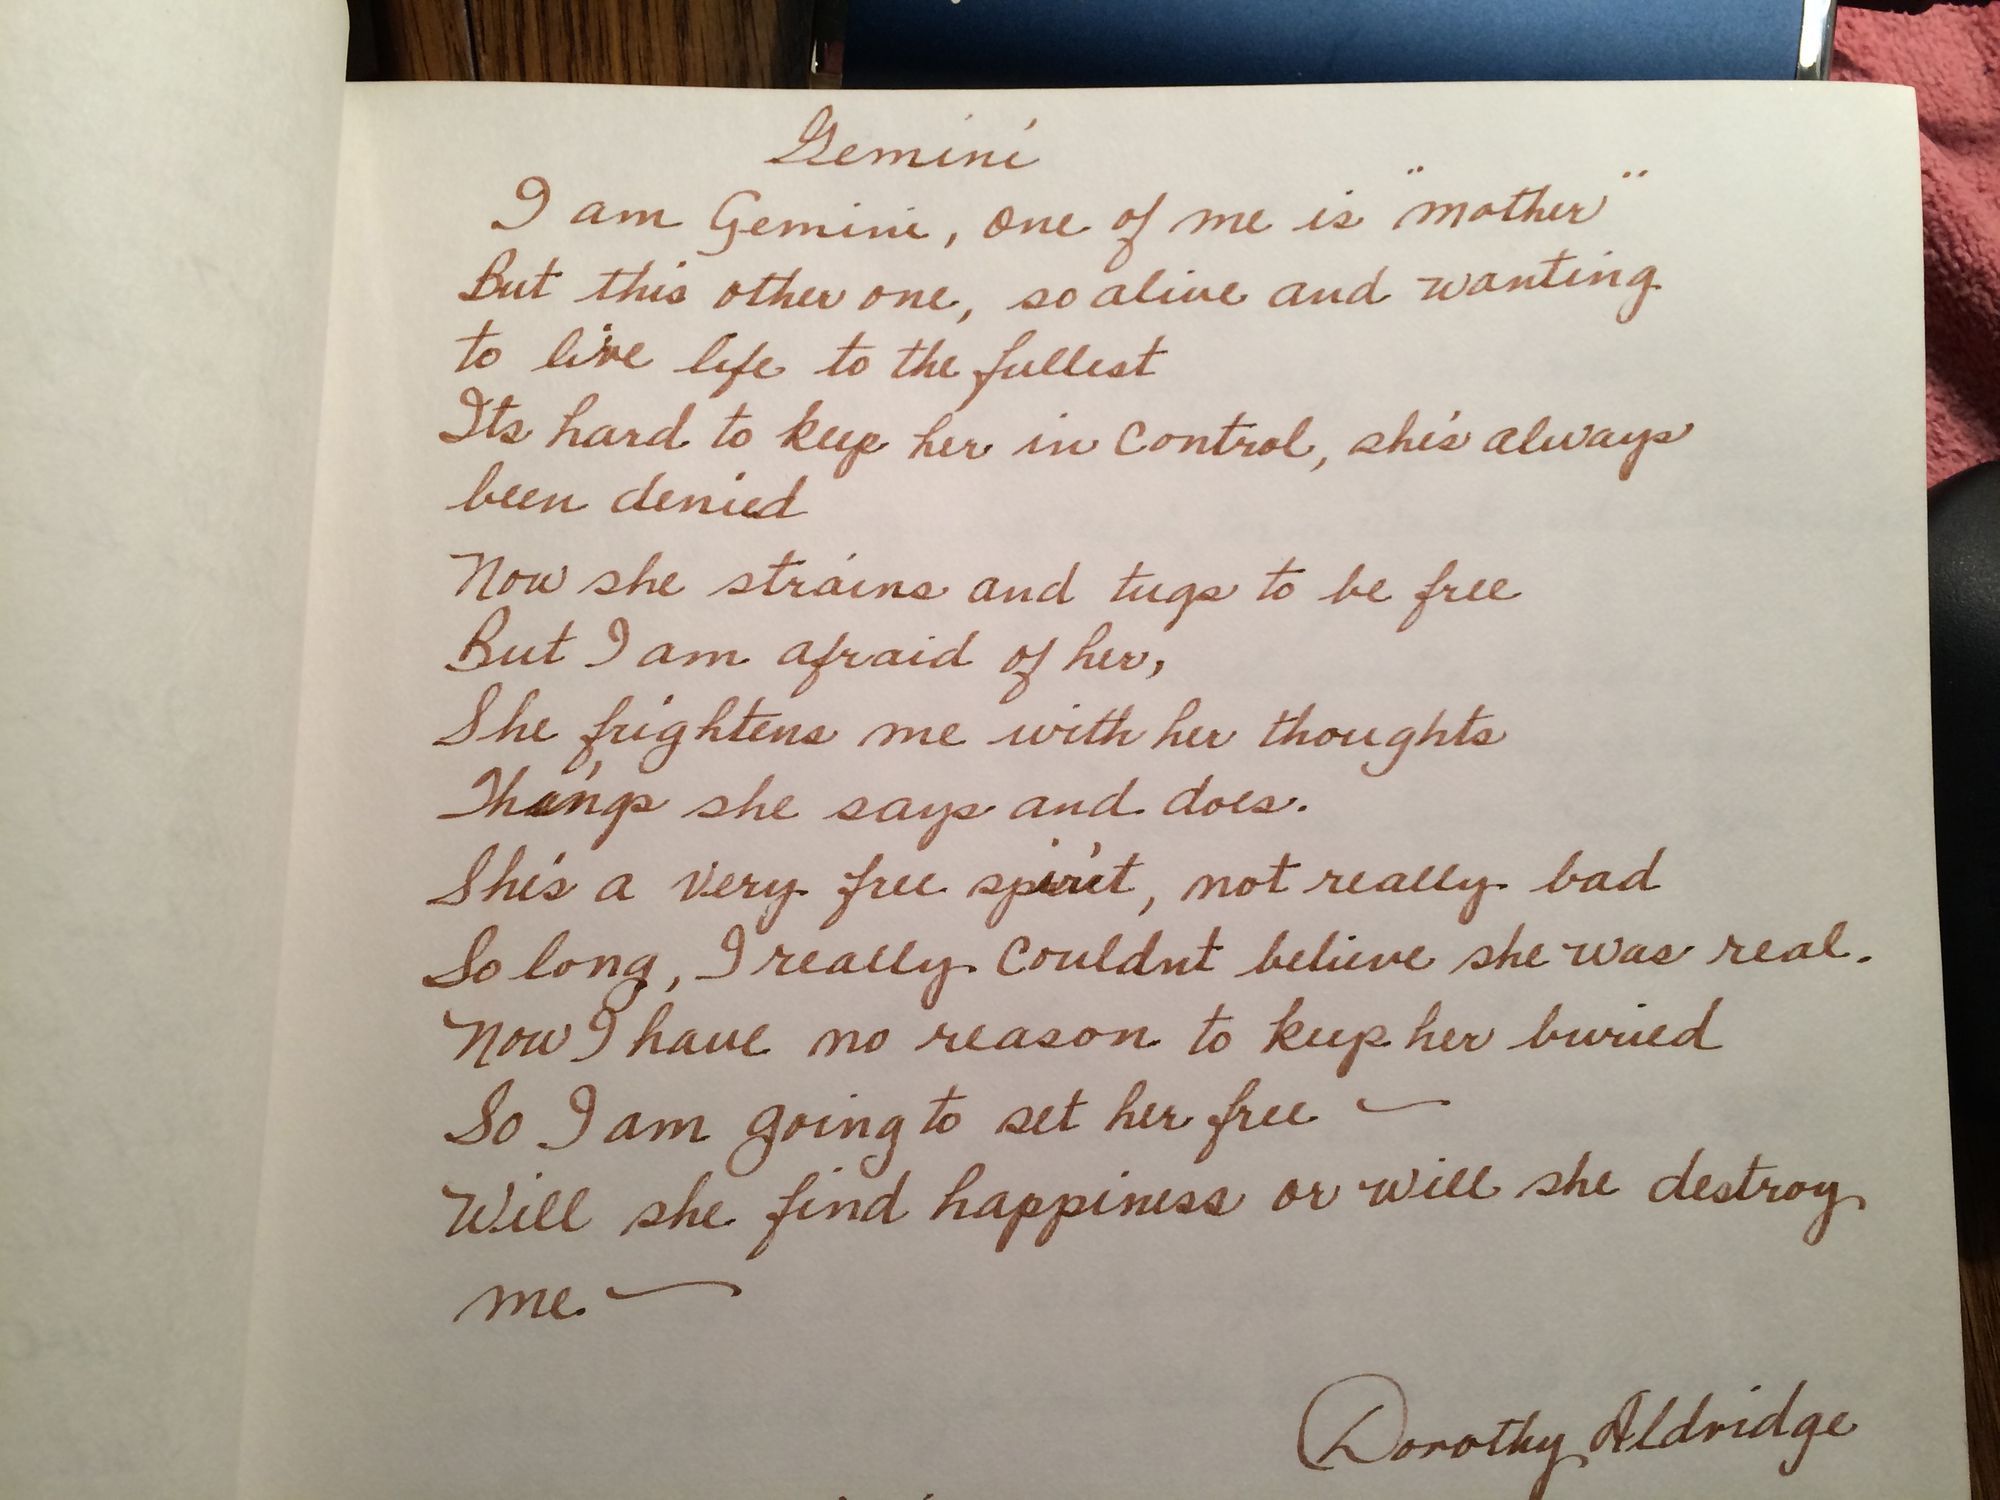 Gemini
I am Gemini, one of me is "mother"
But this other one, so alive and wanting
to live life to the fullest
Its hard to keep her in control, she's always
been denied
Now she strains and tugs to be free
But I am afraid of her,
She frightens me with her thoughts
Things she says and does.
She's a very free spirit, not really bad
So long, I really couldnt believe she was real.
Now I have no reason to keep her buried
So I am going to set her free —
Will she find happiness or will she destroy
me —
Dorothy Aldridge